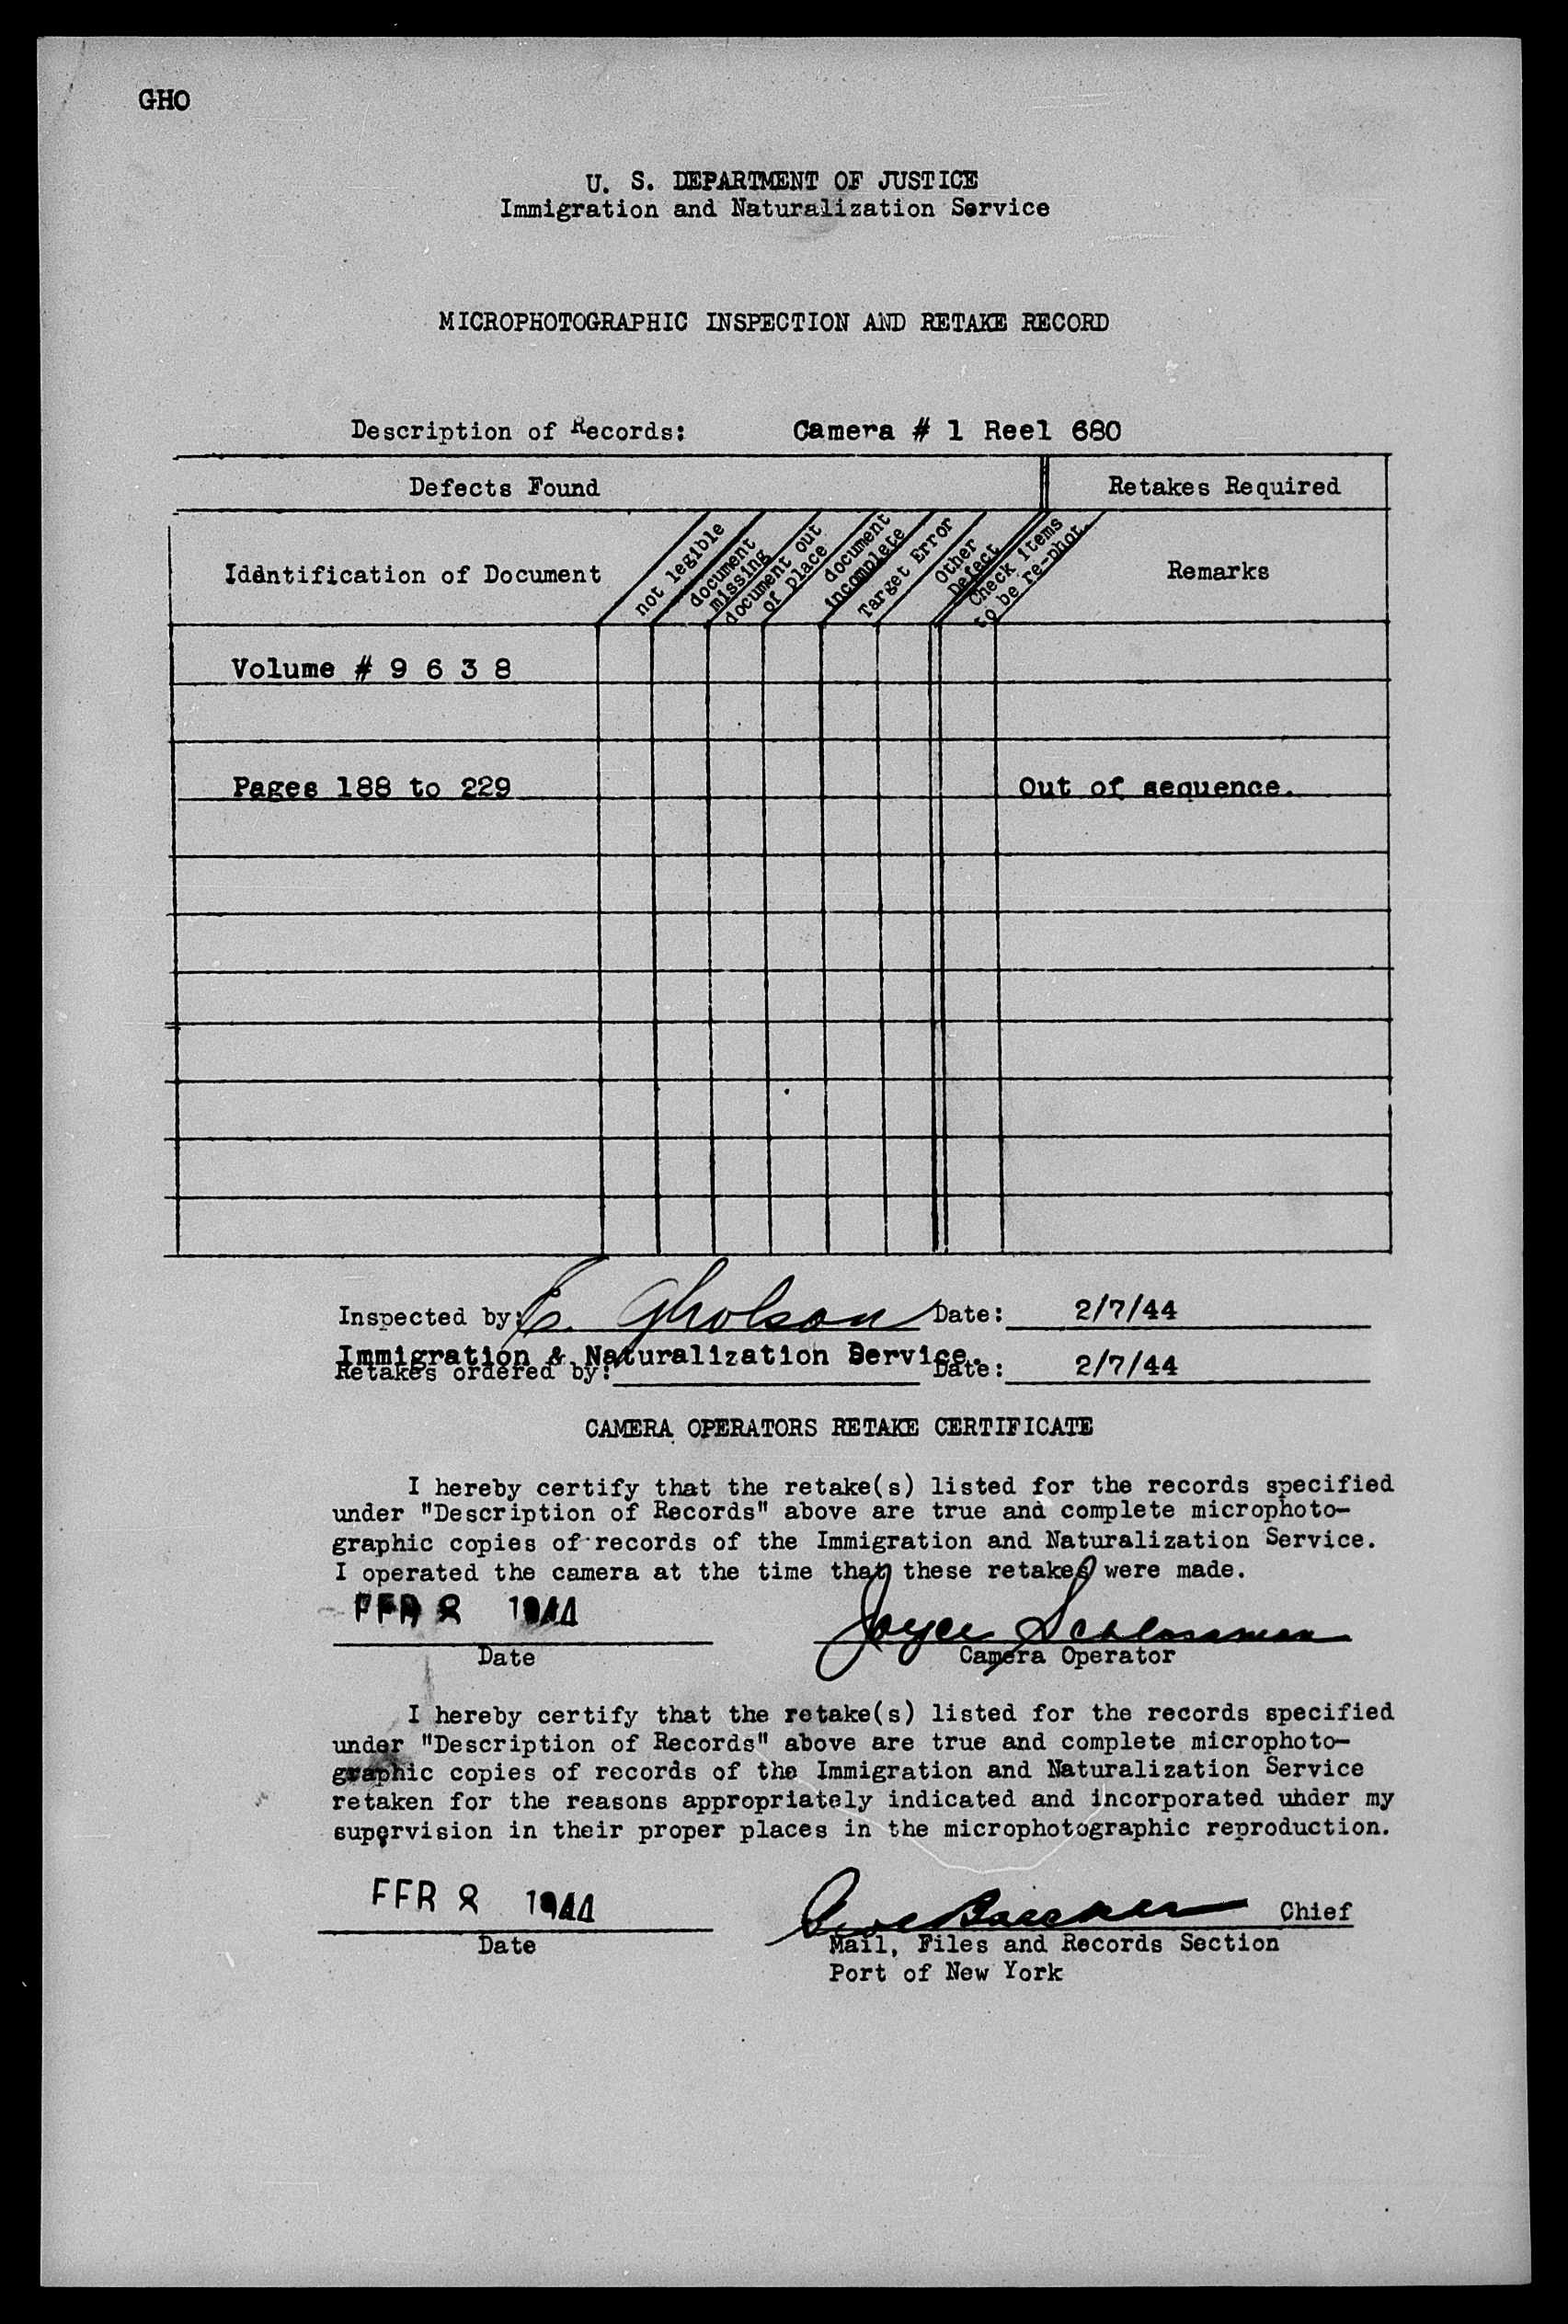 GHO
U. S. DEPARTMENT OF JUSTICE
Immigration and Naturalization Service
MICROPHOTOGRAPHIC INSPECTION AND RETAKE RECORD
Description of Records: Camera # 1 Reel 680
Defects Found
Retakes Required
Identification of Document
not legible
document
missing
document out
of place
document
incomplete
Target Error
Other
Defect
Check items
to be re-phot.
Remarks
Volume # 9 6 3 8
Pages 188 to 229 Out of sequence.
Inspected by: E. Gholson Date: 2/7/44
Immigration & Naturalization Service.
Retakes ordered by: Date: 2/7/44
CAMERA OPERATORS RETAKE CERTIFICATE
I hereby certify that the retake(s) listed for the records specified
under "Description of Records" above are true and complete microphoto-
graphic copies of records of the Immigration and Naturalization Service.
I operated the camera at the time that these retakes were made.
FEB 8 1944 Joyce Schlossman
Date Camera Operator
I hereby certify that the retake(s) listed for the records specified
under "Description of Records" above are true and complete microphoto-
graphic copies of records of the Immigration and Naturalization Service
retaken for the reasons appropriately indicated and incorporated under my
supervision in their proper places in the microphotographic reproduction.
FEB 8 1944 Chief
Date Mail, Files and Records Section
Port of New York